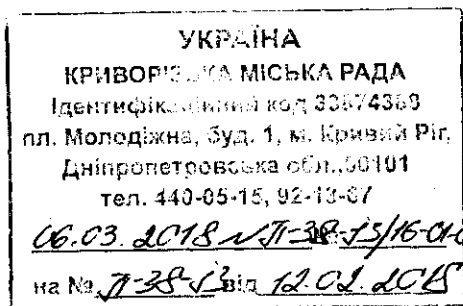 УКРАЇНА
КРИВОРІЗЬКА МІСЬКА РАДА
Ідентифікаційний код 33874388
пл. Молодіжна, буд. 1, м. Кривий Ріг,
Дніпропетровська обл., 50101
тел. 440-05-15, 92-13-67
06.03.2018
на № від 12.02.2018